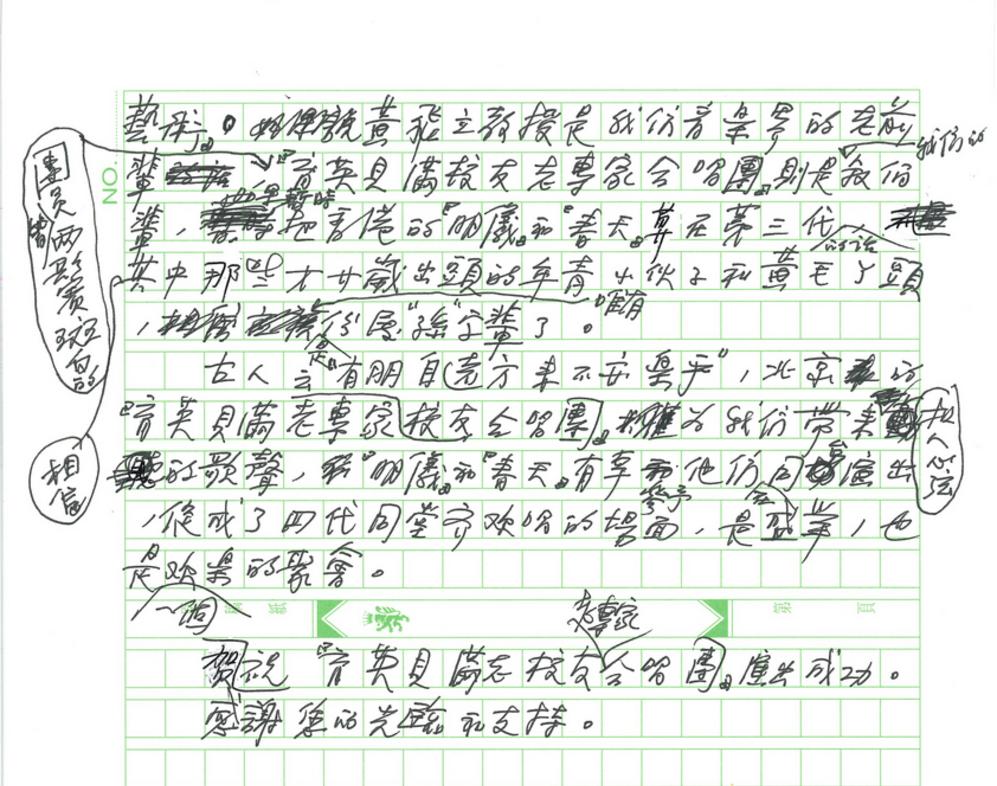 藝術」。如果說黃飛立教授是我們音樂界的老前
輩，『育英貝滿校友老專家合唱團』則是我們的叔伯
輩，如果暫時把香港的『明儀』和『春天』算在第三代的話
其中那些才廿歲出頭的年青小伙子和黃毛丫頭
，唯有份屬“孫”字輩了。
古人云“有朋自遠方來不亦樂乎”，北京的
『育英貝滿老專家校友合唱團』為我們帶來
的歌聲，『明儀』和『春天』有幸和他們同台演出
，條成了四代同堂齊欢唱的場面，是盛筆，也
是欢樂的聚會。
一個
NO.
紙
第 頁
老專家
賀祝『育英貝滿老校友合唱團』演出成功。
感謝您的光臨和支持。
團員
兩鬢斑白的
相信
扣人心弦